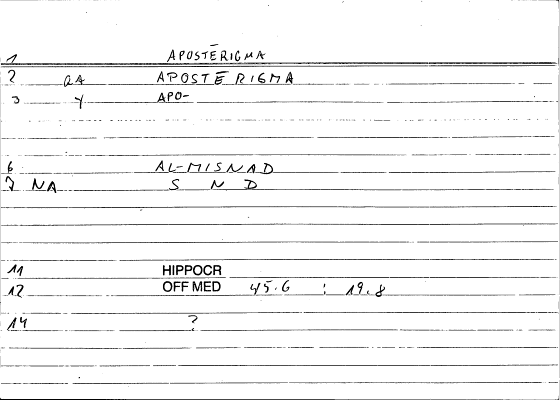 1 APOSTĒRIGMA
2 QA APOSTĒRIGMA
3 Y APO-
6 AL-MISNAD
7 NA S N D
11 HIPPOCR
12 OFF MED 45.6 : 19.8
14 ?